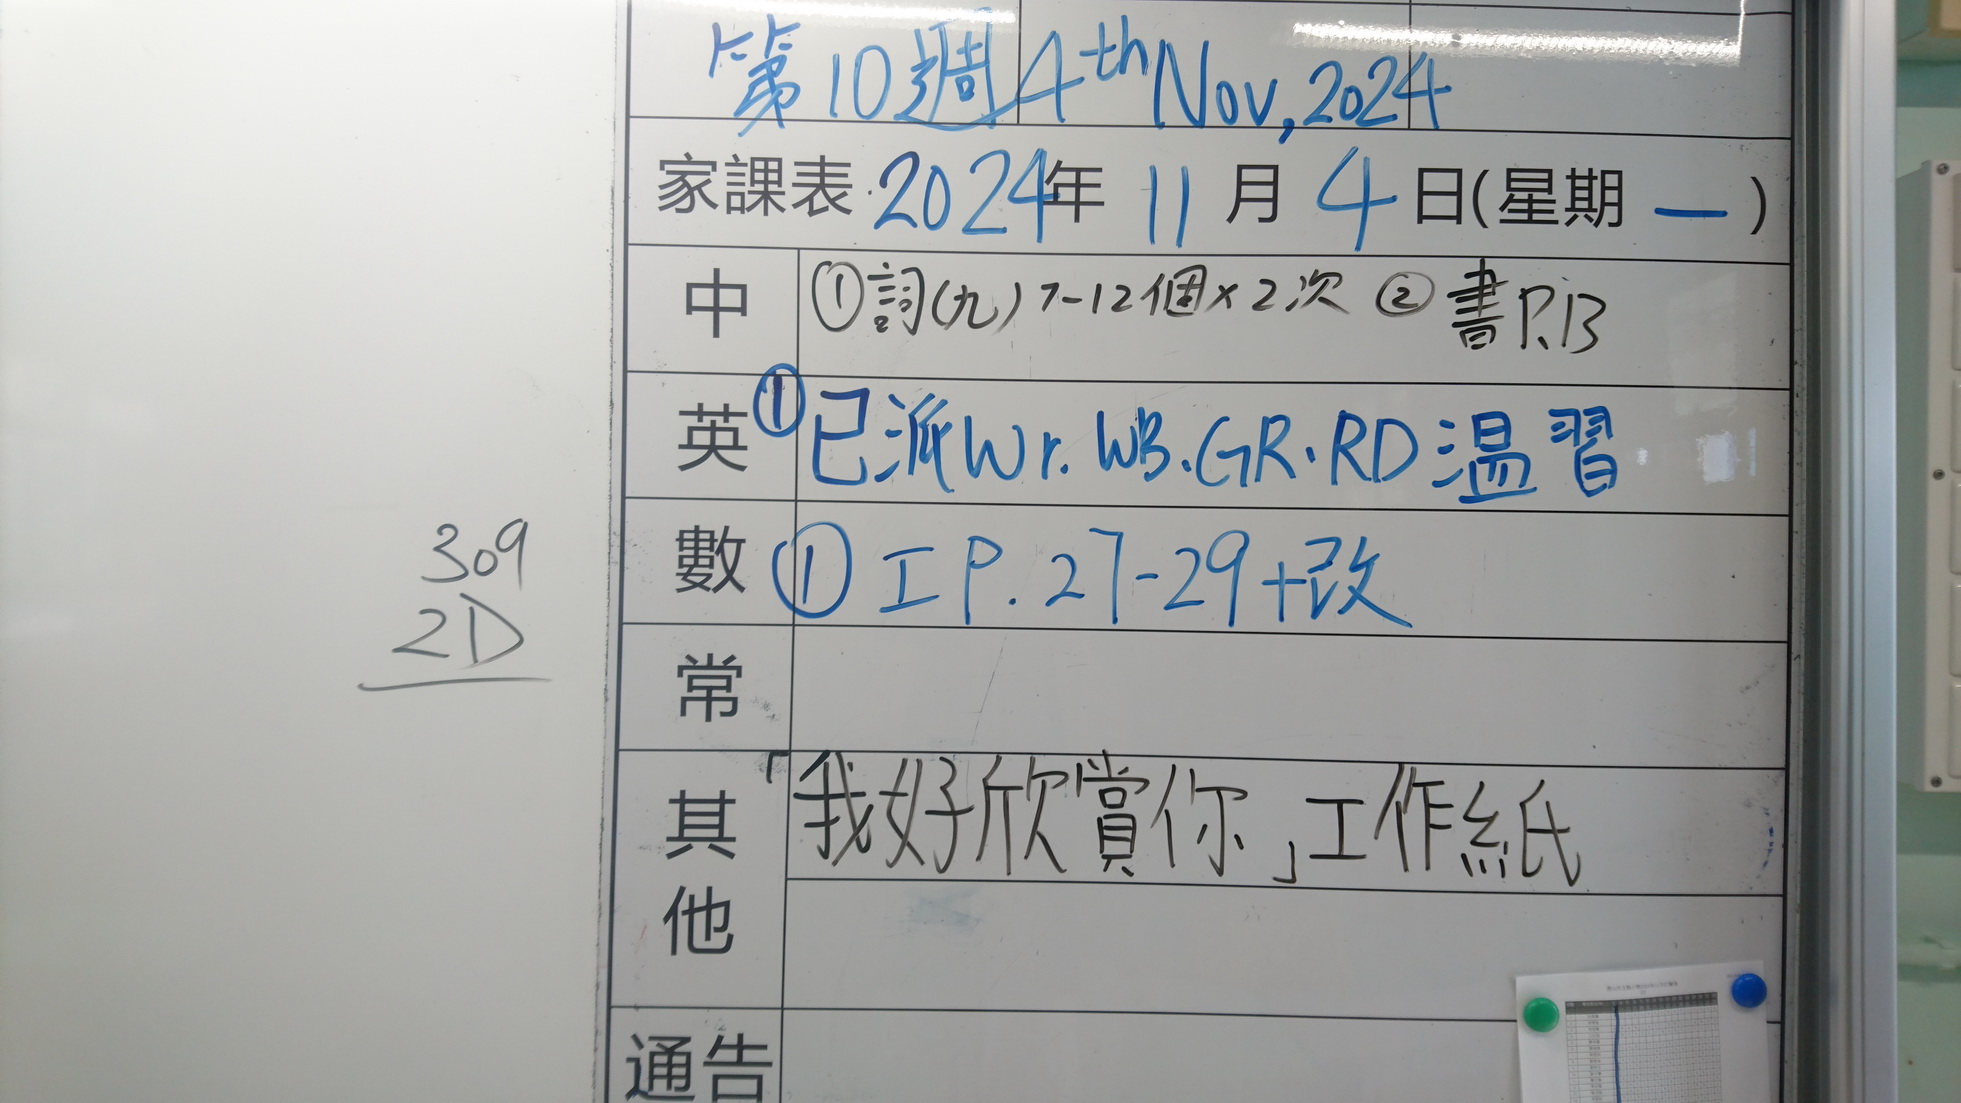 第10週 4th Nov, 2024
家課表 2024年 11月 4日(星期一)
中 ①詞(九) 7-12個×2次 ②書P.13
英 ①已派Wr. WB. GR. RD 溫習
數 ① 工 P. 27-29+改
常
其他 「我好欣賞你」工作紙
通告
309
2D